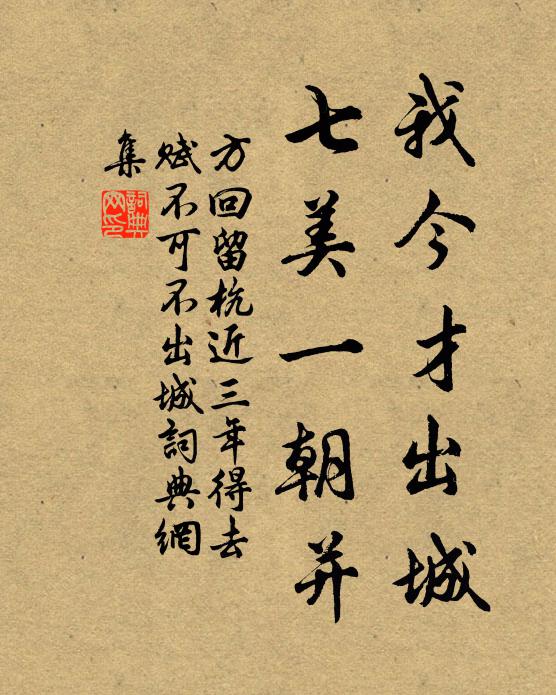 我今才出城
七美一朝并
方回留杭近三年得去
賦不可不出城詞典網
集
詞典
网印